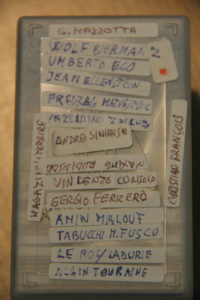 G. MAZZOTTA
WOLF BIERMAN 2
UMBERTO ECO
JEAN ELLENSTEIN
PREDRAG
ANDRE SINIAVSKI
VINCENZO CONSOLO
SERGIO FERRERO
AMIN MALOUF
TABUCCHI M. FUSCO
LE ROY LADURIE
ALAIN TOURAINE
MAGAZINE LITTERAIRE
CHRISTIAN FRANÇOIS